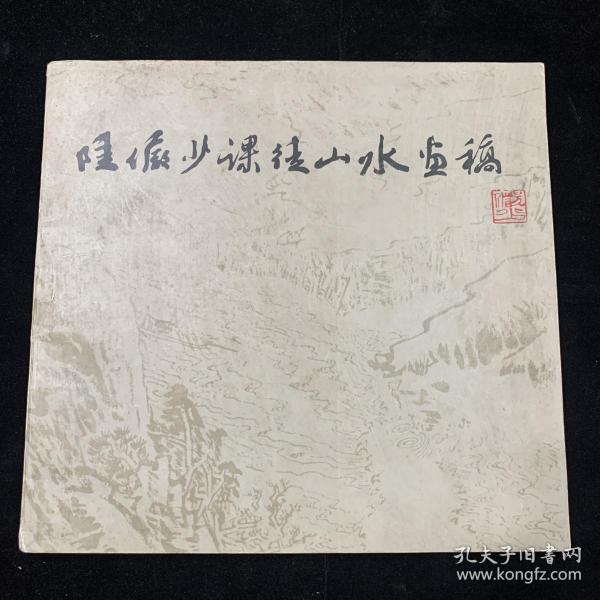 陆俨少课徒山水画稿
孔夫子旧书网
www.kongfz.com